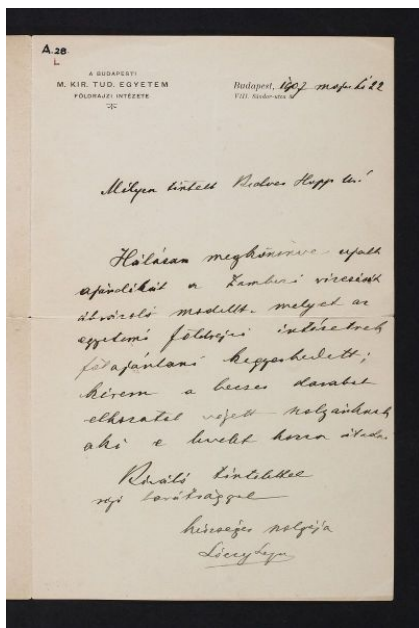 A.28
L
A BUDAPESTI
M. KIR. TUD. EGYETEM
FÖLDRAJZI INTÉZETE
Budapest, 1907 május hó 22
VIII. Sándor-utca 8
Mélyen tisztelt Kedves Hopp Úr!
Hálásan megköszönve újabb
ajándékát a Zambezi vízesését
ábrázoló modellt, melyet az
egyetemi földrajzi intézetnek
felajánlani kegyeskedett;
kérem a becses darabot
elhozatal végett szolgánknak
aki e levelet hozza átadni.
Kiváló tisztelettel
régi barátsággal
készséges szolgája
Lóczy Lajos